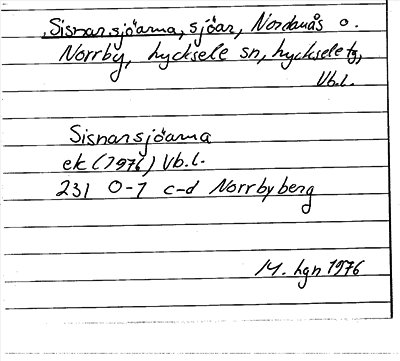 Sisnarsjöarna, sjöar, Nordanås o.
Norrby, Lycksele sn, Lycksele tg,
Vb.l.
Sisnarsjöarna
ek (1976) Vb.l.
231 0-1 c-d Norrbyberg
M. hgn 1976